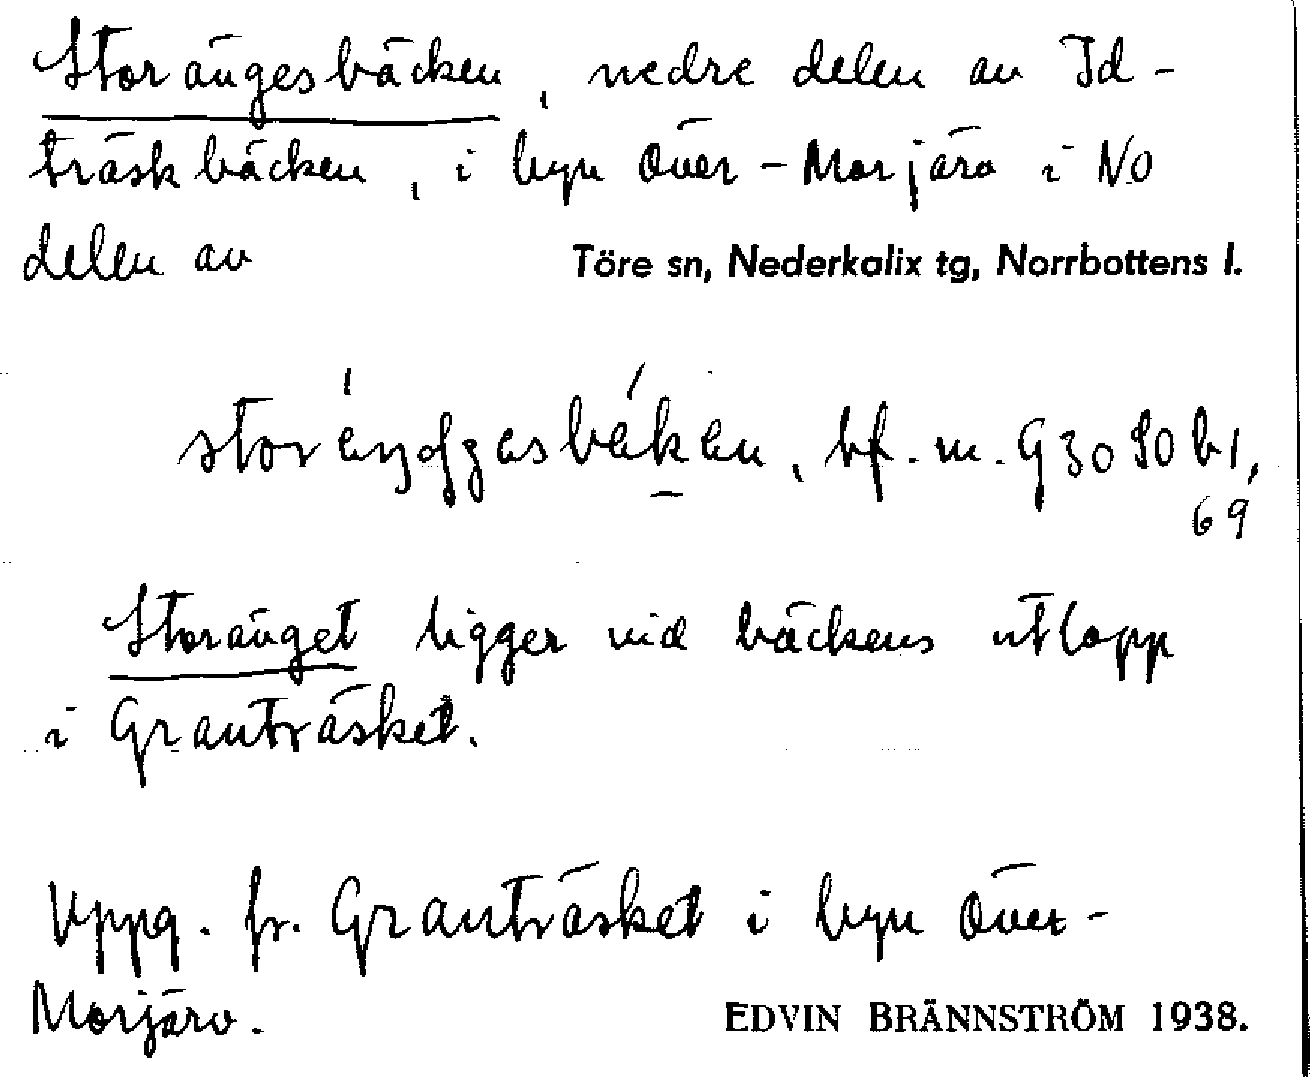 Storängesbäcken, nedre delen av Id-
träskbäcken, i byn Över-Morjärv i NO
delen av Töre sn, Nederkalix tg, Norrbottens l.
bf. m. G 30 80 b1,
69
Storänget ligger vid bäckens utlopp
i Granträsket.
Uppg. fr. Granträsket i byn Över-
Morjärv.
EDVIN BRÄNNSTRÖM 1938.